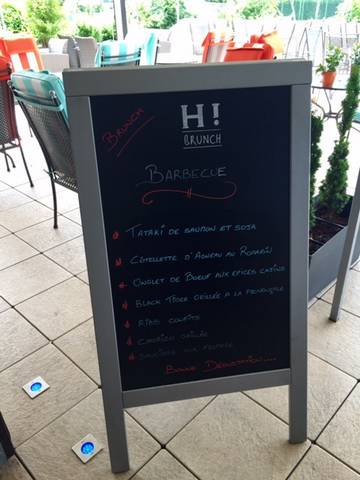 BRUNCH
H!
BRUNCH
BARBECUE
TATAKI DE SAUMON ET SOJA
COTELETTE D'AGNEAU AU ROMARIN
ONGLET DE BOEUF AUX EPICES CAJUNS
BLACK TIGER GRILLÉE A LA PROVENÇALE
RIBS CONFITS
CHORIZO GRILLÉ
SAUCISSE AUX
BONNE DÉGUSTATION....